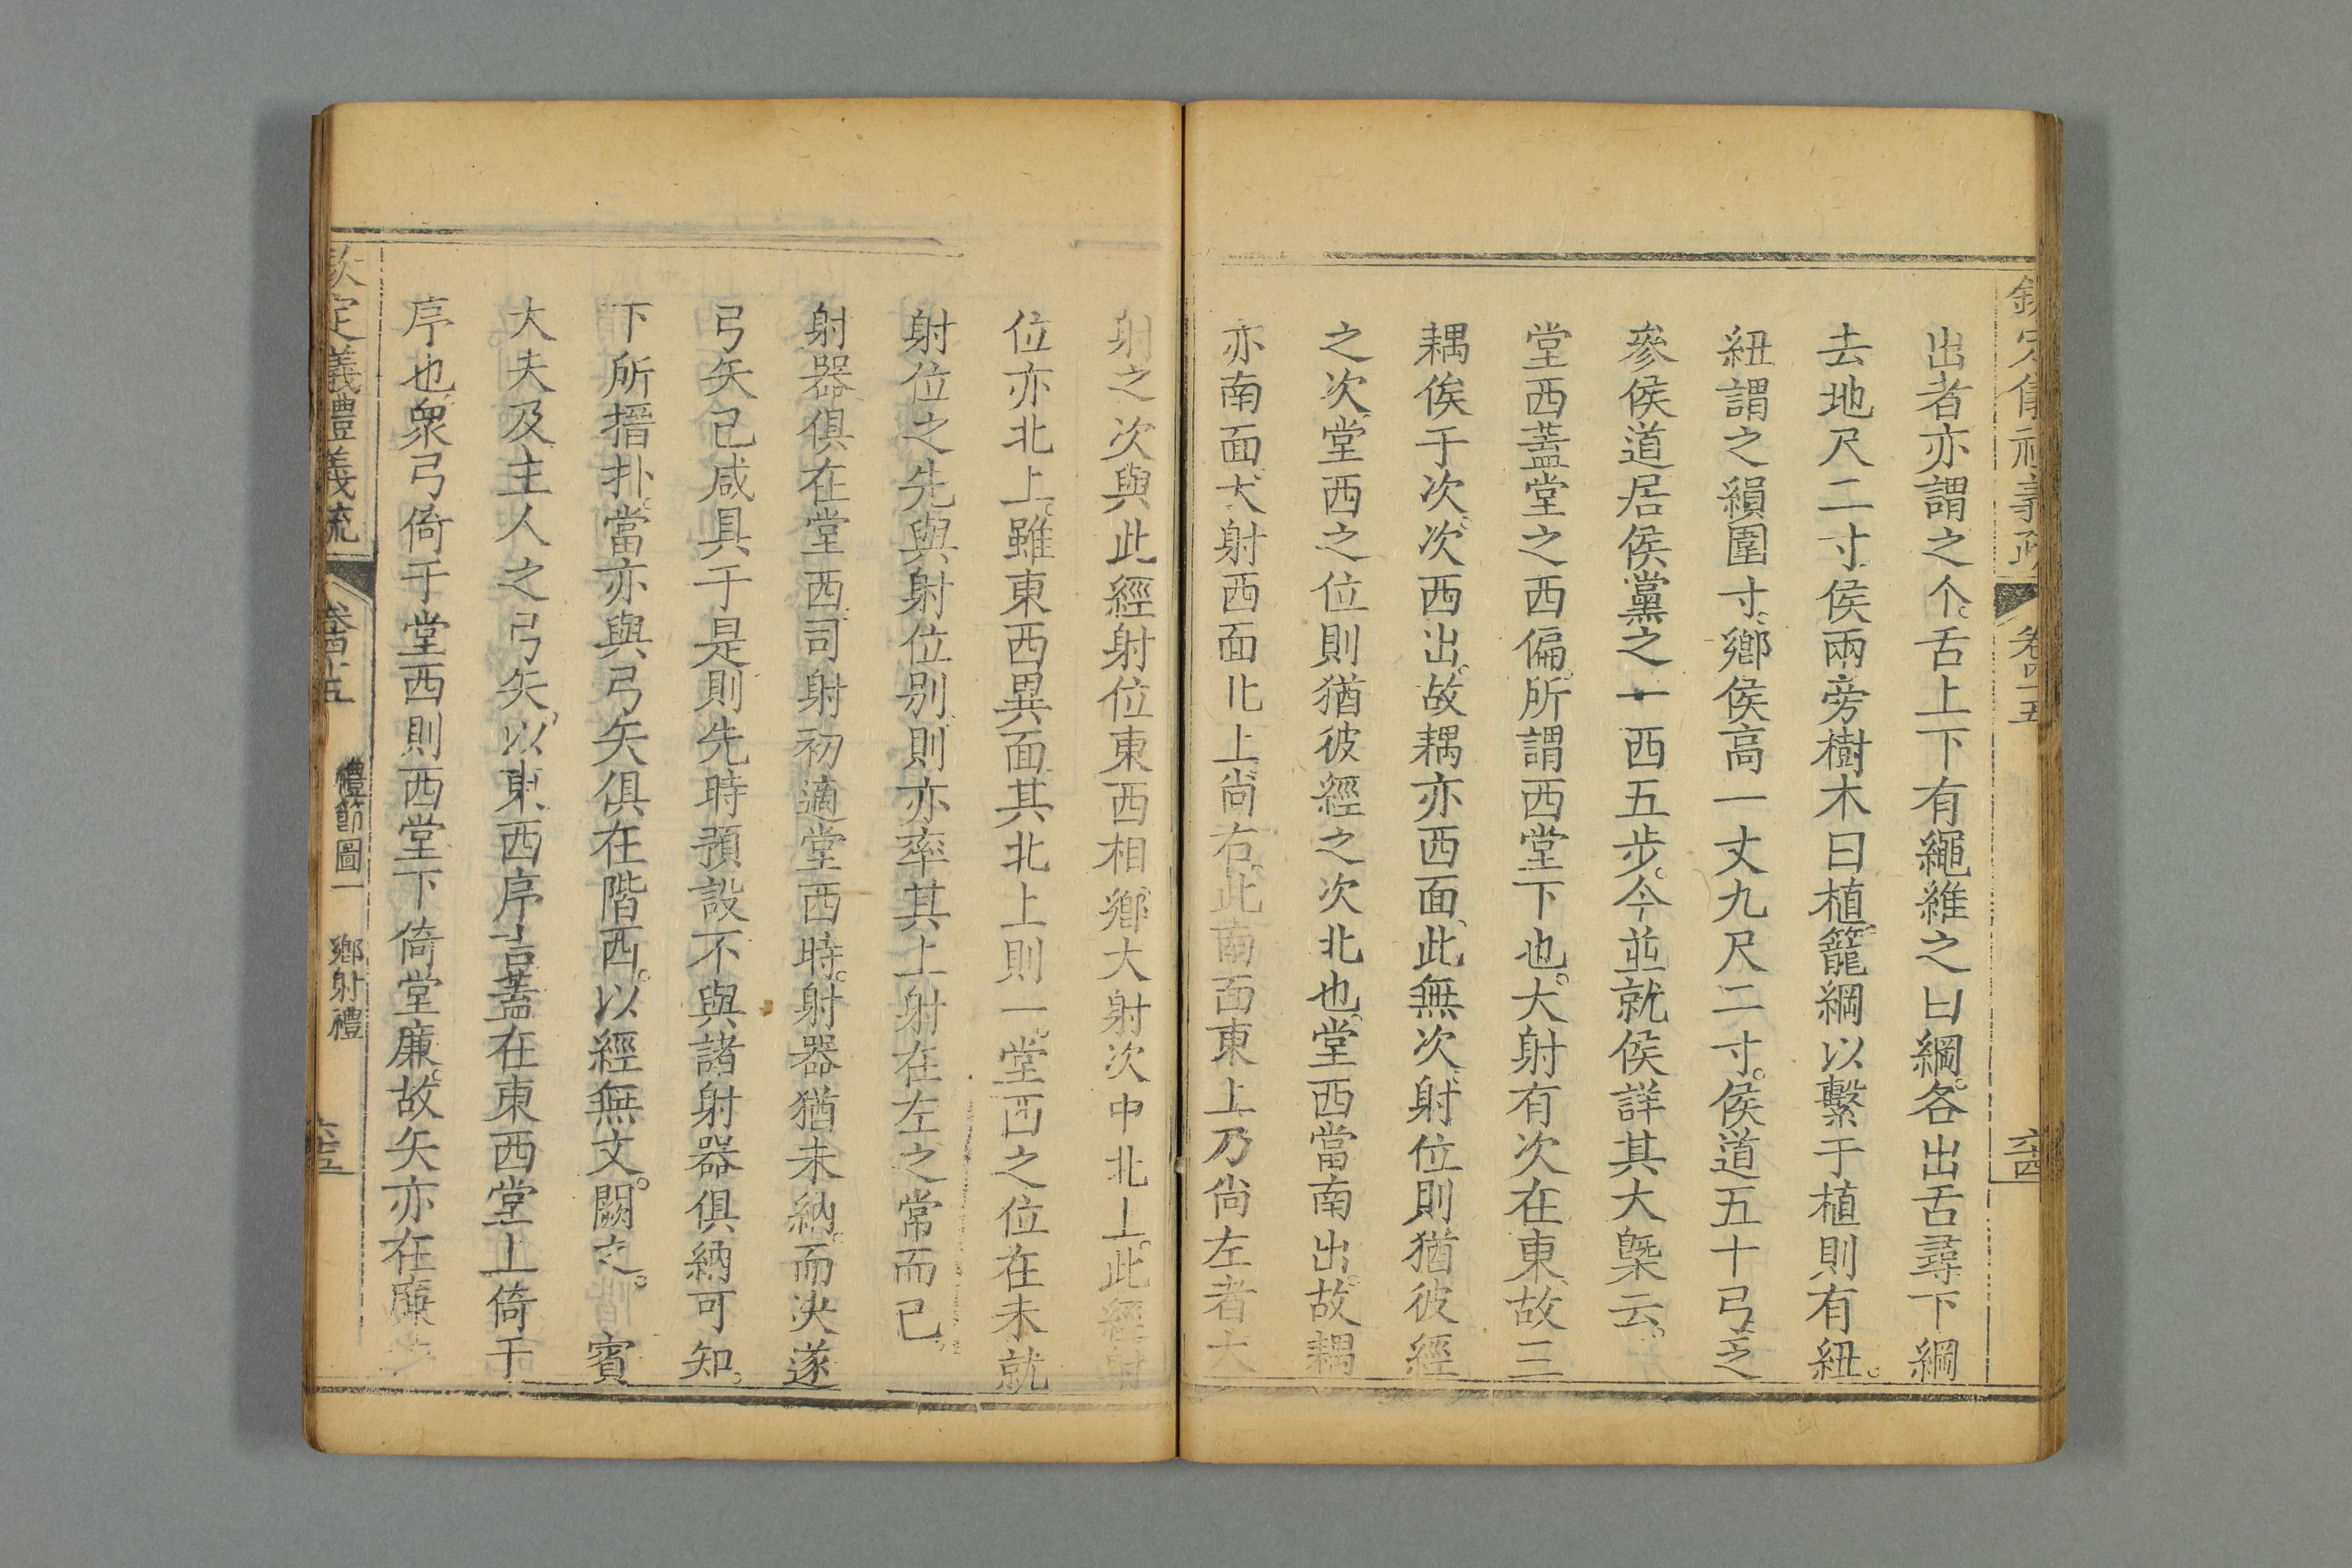 出者亦謂之个。舌上下有繩維之曰綱。各出舌尋下綱
去地尺二寸。侯兩旁樹木曰植。籠綱以繫于植則有紐。
紐謂之縜圍寸。鄉侯高一丈九尺二寸。侯道五十弓之
參侯道居侯黨之一西五步。今並就侯詳其大槩云。
堂西蓋堂之西偏。所謂西堂下也。大射有次在東。故三
耦俟于次。次西出。故耦亦西面。此無次。射位則猶彼經
之次。堂西之位則猶彼經之次北也。堂西當南出。故耦
亦南面。大射西面北上。尚右。此南面東上乃尚左者。大
射之次與此經射位東西相鄉。大射次中北上。此經射
位亦北上。雖東西異面。其北上則一。堂西之位在未就
射位之先。與射位别。則亦率其上射在左之常而已。
射器俱在堂西。司射初適堂西時。射器猶未納。而決遂
弓矢已咸具于是。則先時預設不與諸射器俱納可知。
下所搢扑。當亦與弓矢俱在階西。以經無文。闕之。 賓
大夫及主人之弓矢。以東西序言。蓋在東西堂上倚于
序也。衆弓倚于堂西則西堂下倚堂廉。故矢亦在廉
欽定儀禮義疏 卷四十五 禮節圖一 鄉射禮 六十五